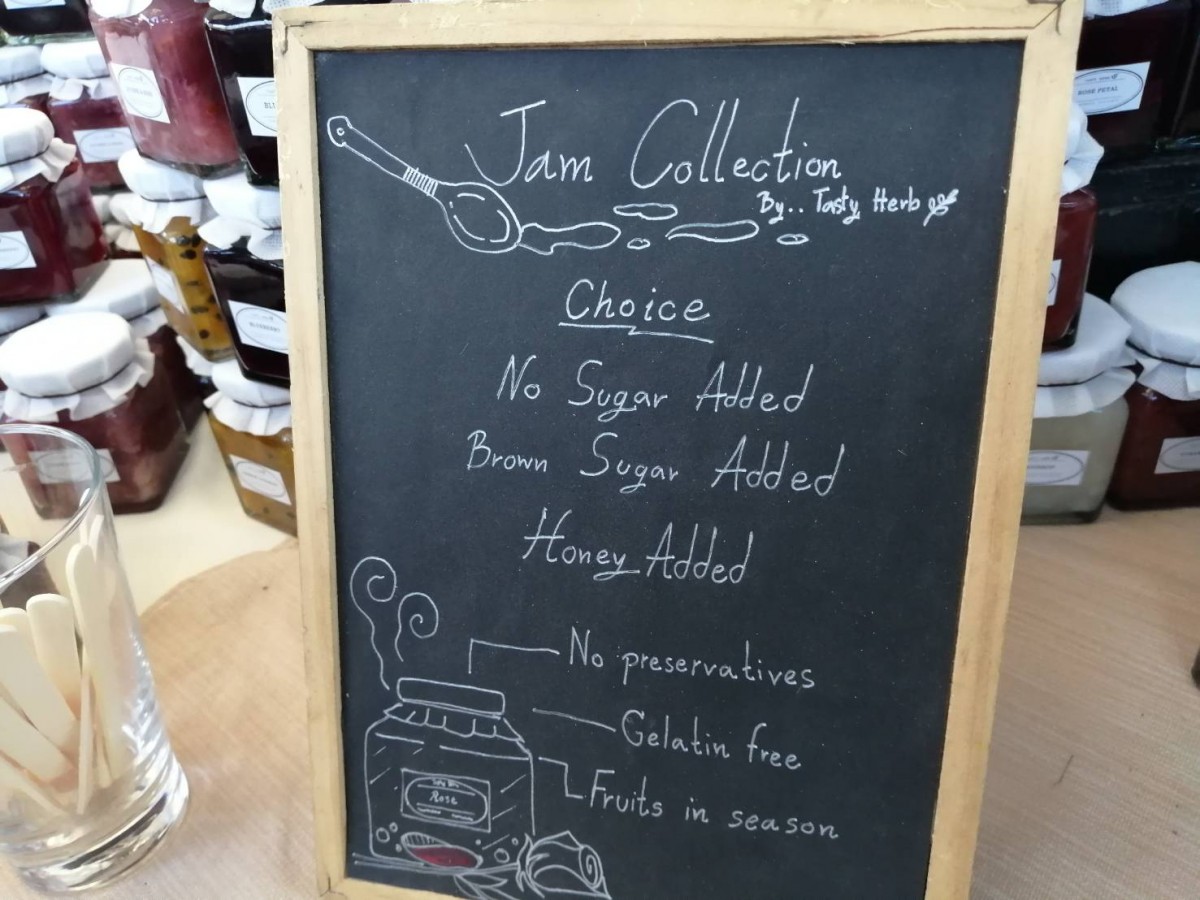 Jam Collection
By.. Tasty Herb
Choice
No Sugar Added
Brown Sugar Added
Honey Added
No preservatives
Gelatin free
Fruits in season
Rose
BLUEBERRY
ROSE PETAL